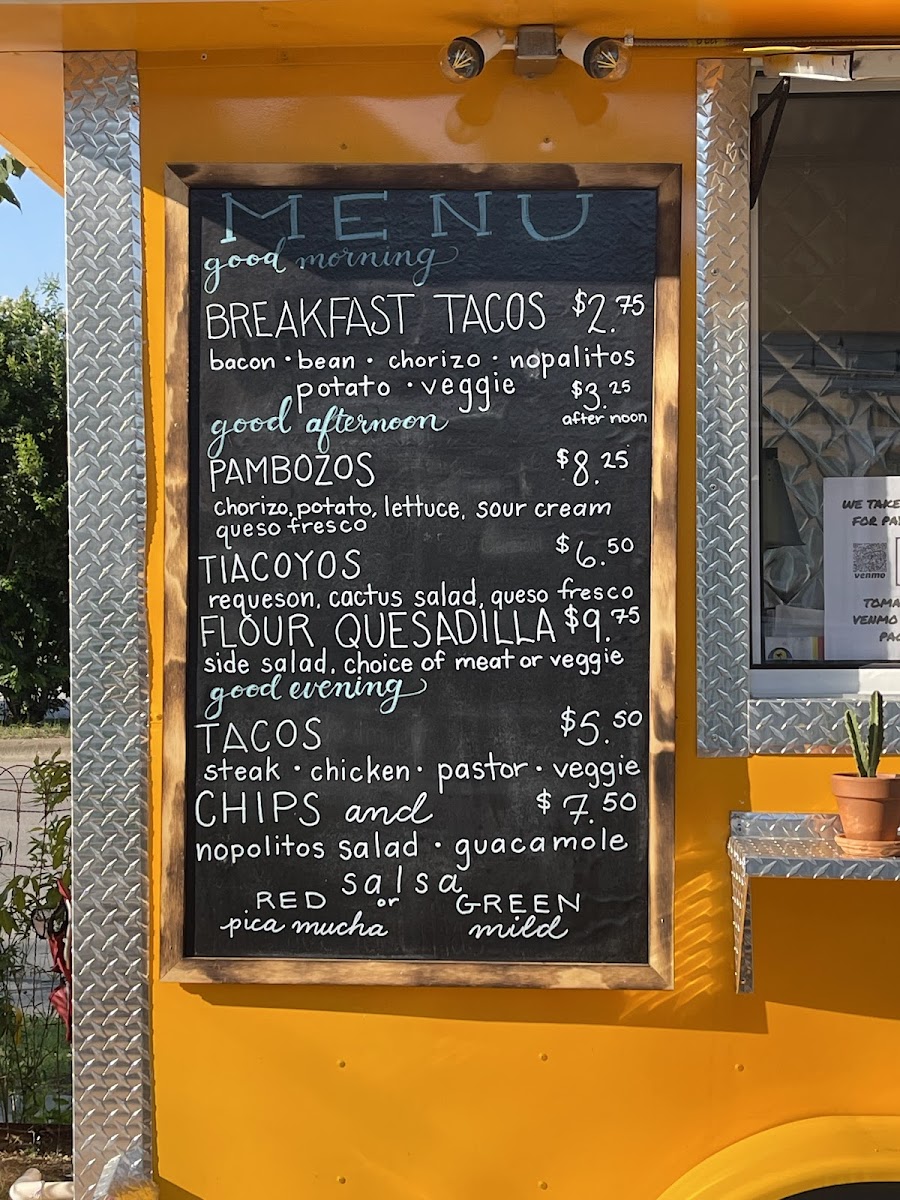 MENU
good morning
BREAKFAST TACOS $2.75
bacon · bean · chorizo · nopalitos
potato · veggie $3.25
after noon
good afternoon
PAMBOZOS $8.25
chorizo, potato, lettuce, sour cream
queso fresco
TlACOYOS $6.50
requeson, cactus salad, queso fresco
FLOUR QUESADILLA $9.75
side salad, choice of meat or veggie
good evening
TACOS $5.50
steak · chicken · pastor · veggie
CHIPS and $7.50
nopolitos salad · guacamole
salsa
RED or GREEN
pica mucha mild
WE TAKE
FOR PA
venmo
TOMA
VENMO